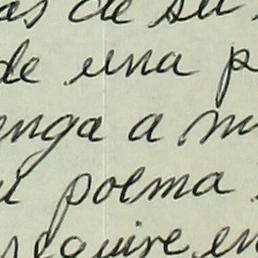 as de su
de una p
enga a m
u poema
require en